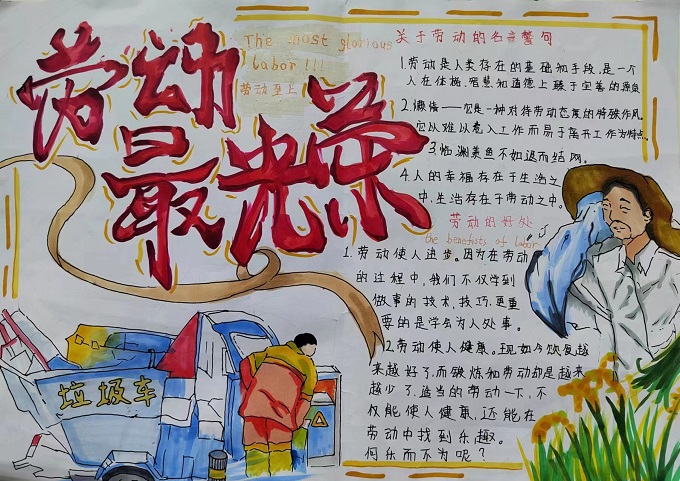 劳动
最光荣
The most glorious
labor!!!
劳动至上
关于劳动的名言警句
1.劳动是人类存在的基础和手段,是一个
人在体格、智慧和道德上臻于完善的源泉
2.懒惰——它是一种对待劳动态度的特殊作风。
它以难以卷入工作而易于离开工作为特点。
3.临渊羡鱼不如退而结网。
4.人的幸福存在于生活之
中,生活存在于劳动之中。
劳动的好处
The benefists of labor
1.劳动使人进步。因为在劳动
的过程中,我们不仅学到
做事的技术、技巧,更重
要的是学会为人处事。
2.劳动使人健康。现如今饮食越
来越好了,而锻炼和劳动却是越来
越少了,适当的劳动一下,不
仅能使人健康,还能在
劳动中找到乐趣。
何乐而不为呢?
垃圾车